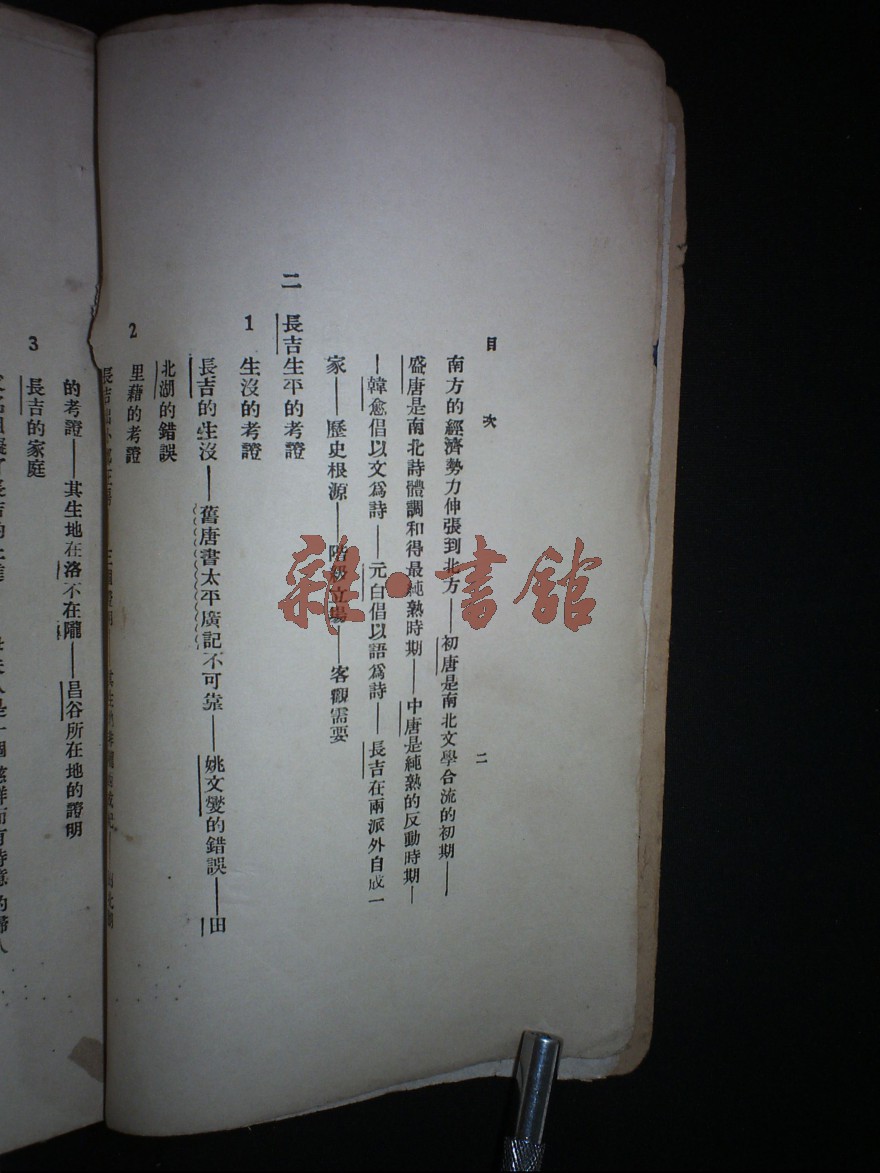 目次
二
南方的經濟勢力伸張到北方——初唐是南北文學合流的初期——
盛唐是南北詩體調和得最純熟時期——中唐是純熟的反動時期—
—韓愈倡以文爲詩——元白倡以語爲詩——長吉在兩派外自成一
家——歷史根源——階級立場——客觀需要
二 長吉生平的考證
1 生沒的考證
長吉的生沒——舊唐書太平廣記不可靠——姚文燮的錯誤——田
北湖的錯誤
2 里藉的考證
長吉出
的考證——其生地在洛不在隴——昌谷所在地的證明
3 長吉的家庭
長吉的 是一個慈祥而有詩意的婦人
雜·書館